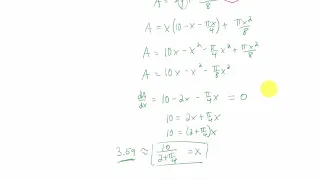 A = x(10-x-πx/4) + πx²/8
A = 10x - x² - π/4 x² + πx²/8
A = 10x - x² - π/8 x²
dA/dx = 10 - 2x - π/4 x = 0
10 = 2x + π/4 x
10 = (2+π/4)x
3.59 ≈ 10/(2+π/4) = x